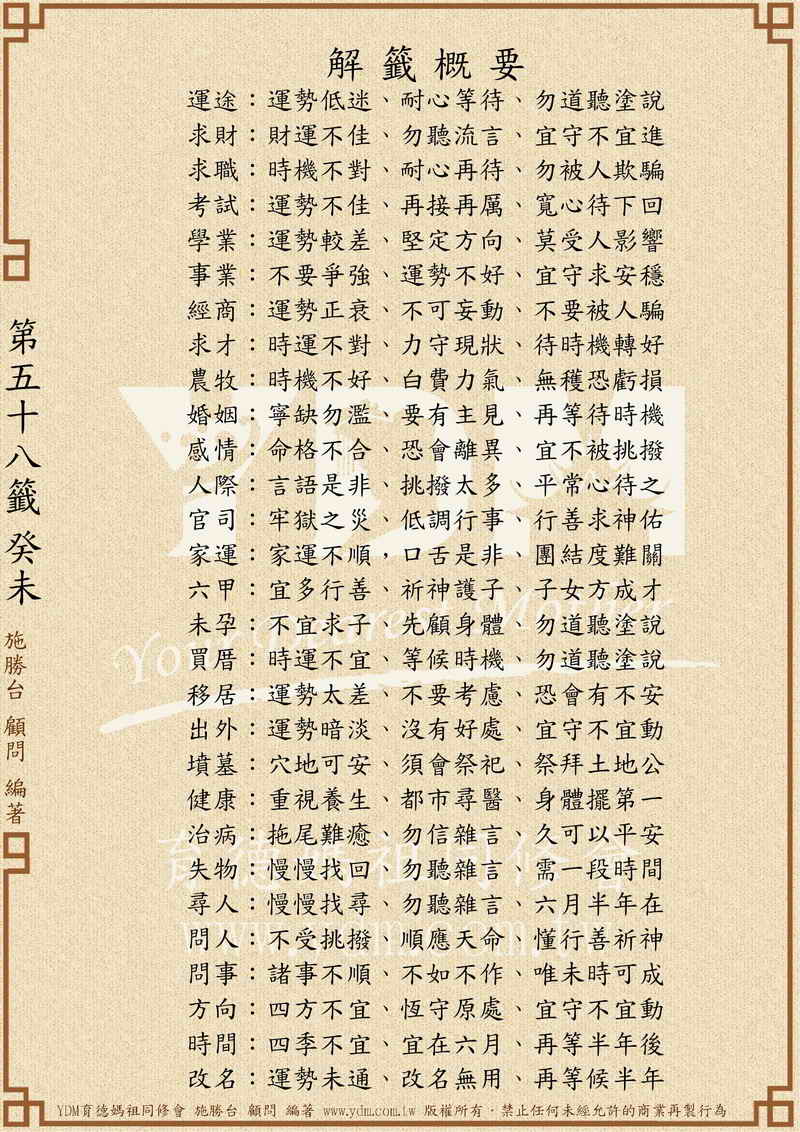 解籤概要
運途：運勢低迷、耐心等待、勿道聽塗說
求財：財運不佳、勿聽流言、宜守不宜進
求職：時機不對、耐心再待、勿被人欺騙
考試：運勢不佳、再接再厲、寬心待下回
學業：運勢較差、堅定方向、莫受人影響
事業：不要爭強、運勢不好、宜守求安穩
經商：運勢正衰、不可妄動、不要被人騙
求才：時運不對、力守現狀、待時機轉好
農牧：時機不好、白費力氣、無穫恐虧損
婚姻：寧缺勿濫、要有主見、再等待時機
感情：命格不合、恐會離異、宜不被挑撥
人際：言語是非、挑撥太多、平常心待之
官司：牢獄之災、低調行事、行善求神佑
家運：家運不順，口舌是非、團結度難關
六甲：宜多行善、祈神護子、子女方成才
未孕：不宜求子、先顧身體、勿道聽塗說
買厝：時運不宜、等候時機、勿道聽塗說
移居：運勢太差、不要考慮、恐會有不安
出外：運勢暗淡、沒有好處、宜守不宜動
墳墓：穴地可安、須會祭祀、祭拜土地公
健康：重視養生、都市尋醫、身體擺第一
治病：拖尾難癒、勿信雜言、久可以平安
失物：慢慢找回、勿聽雜言、需一段時間
尋人：慢慢找尋、勿聽雜言、六月半年在
問人：不受挑撥、順應天命、懂行善祈神
問事：諸事不順、不如不作、唯未時可成
方向：四方不宜、恆守原處、宜守不宜動
時間：四季不宜、宜在六月、再等半年後
改名：運勢未通、改名無用、再等候半年
第五十八籤 癸未
施勝台 顧問 編著
YDM
Your Dearest Mother
育德媽祖同修會
www.ydm.com.tw
YDM育德媽祖同修會 施勝台 顧問 編著 www.ydm.com.tw 版權所有．禁止任何未經允許的商業再製行為